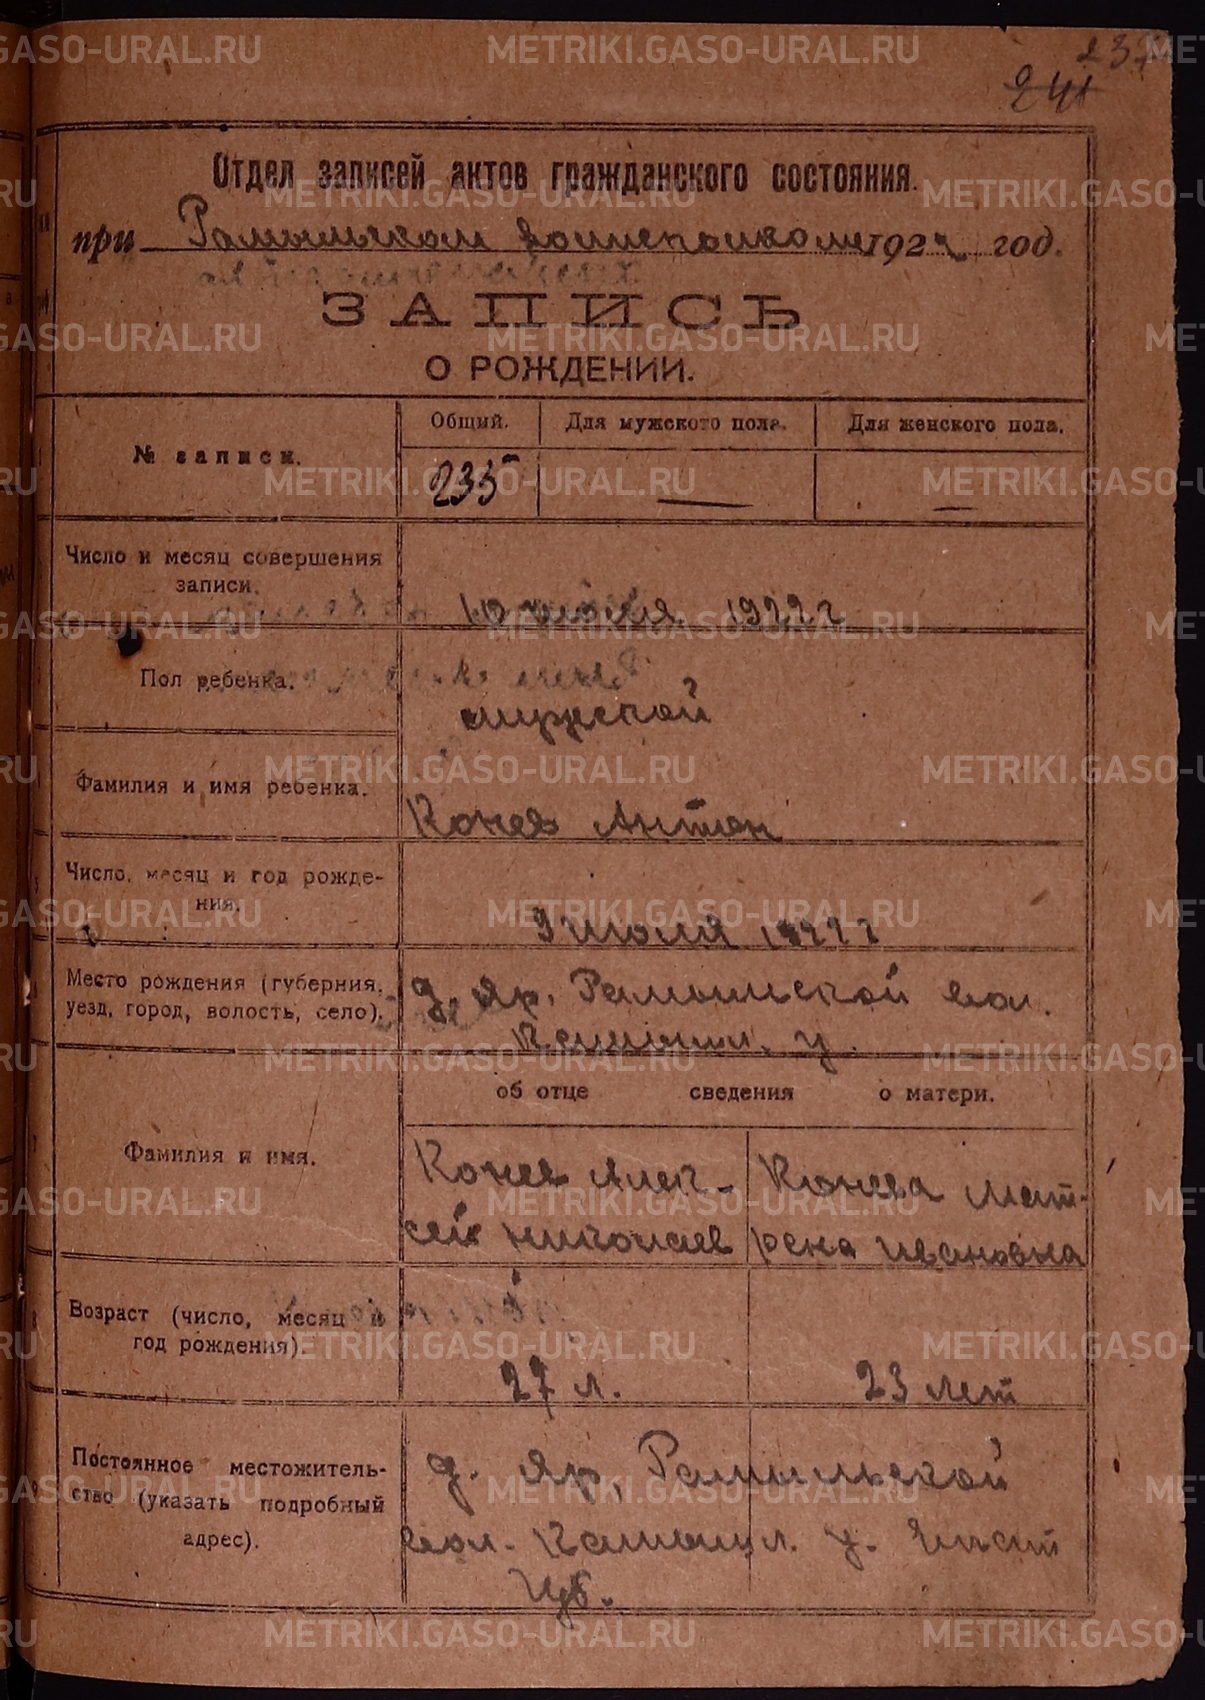 237
241
Отдел записей актов гражданского состояния.
при Рамыльском волисполкоме 1922 год.
ЗАПИСЬ
О РОЖДЕНИИ.
№ записи.
Общий.
Для мужского пола.
Для женского пола.
235
—
—
Число и месяц совершения
записи.
10 июля 1922 г
Пол ребенка.
мужской
Фамилия и имя ребенка.
Конев Антон
Число, месяц и год рожде-
ния.
9 июля 1922 г
Место рождения (губерния,
уезд, город, волость, село).
д. Яр, Рамыльской вол.
Камышл. у.
об отце сведения о матери.
Фамилия и имя.
Конев Алек-
сей Николаев
Конева Мат-
рена Ивановна
Возраст (число, месяц и
год рождения).
27 л.
23 лет
Постоянное местожитель-
ство (указать подробный
адрес).
д. Яр, Рамыльской
вол. Камышл. у. Екат
губ.
METRIKI.GASO-URAL.RU